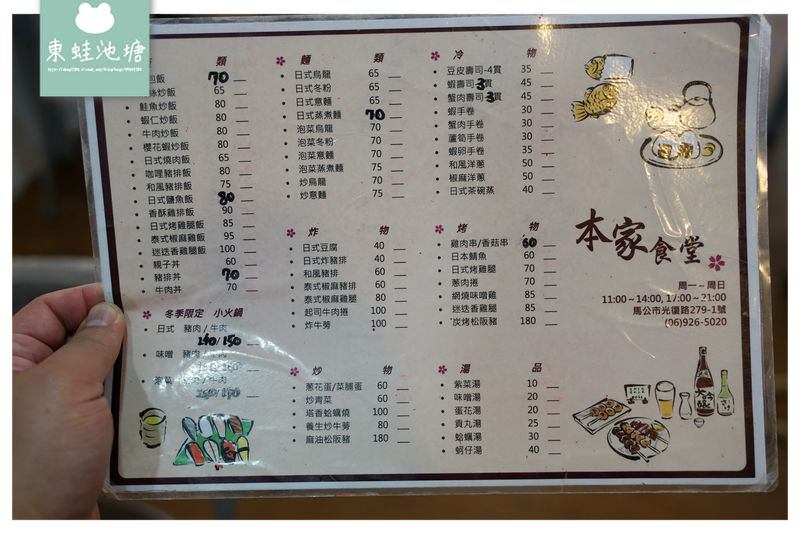 東蛙池塘
類
包飯 70
炒飯 65
鮭魚炒飯 80
蝦仁炒飯 80
牛肉炒飯 80
櫻花蝦炒飯 80
日式燒肉飯 65
咖哩豬排飯 80
和風豬排飯 75
日式鹽魚飯 80
香酥雞排飯 90
日式烤雞腿飯 85
泰式椒麻雞飯 95
迷迭香雞腿飯 100
親子丼 60
豬排丼 70
牛肉丼 70
冬季限定 小火鍋
日式 豬肉/牛肉
140/150
味噌 豬肉/牛肉
泡菜 豬肉/牛肉
麵 類
日式烏龍 65
日式冬粉 65
日式意麵 65
日式蒸煮麵 70
泡菜烏龍 70
泡菜冬粉 70
泡菜意麵 70
泡菜蒸煮麵 75
炒烏龍 70
炒意麵 75
炸 物
日式豆腐 40
日式炸豬排 40
和風豬排 60
泰式椒麻豬排 60
泰式椒麻雞腿 80
起司牛肉捲 100
炸牛蒡 100
炒 物
蔥花蛋/菜脯蛋 60
炒青菜 60
塔香蛤蠣燒 100
養生炒牛蒡 80
麻油松阪豬 180
冷 物
豆皮壽司-4貫 35
蝦壽司-3貫 45
蟹肉壽司-3貫 45
蝦手卷 30
蟹肉手卷 30
蘆筍手卷 30
蝦卵手卷 30
和風洋蔥 50
椒麻洋蔥 50
日式茶碗蒸 40
烤 物
雞肉串/香菇串 60
日本鯖魚 60
日式烤雞腿 70
蔥肉捲 70
網燒味噌雞 85
迷迭香雞腿 85
炭烤松阪豬 180
湯 品
紫菜湯 10
味噌湯 20
蛋花湯 20
貢丸湯 25
蛤蠣湯 30
蚵仔湯 40
本家食堂
周一~周日
11:00~14:00, 17:00~21:00
馬公市光復路279-1號
(06)926-5020